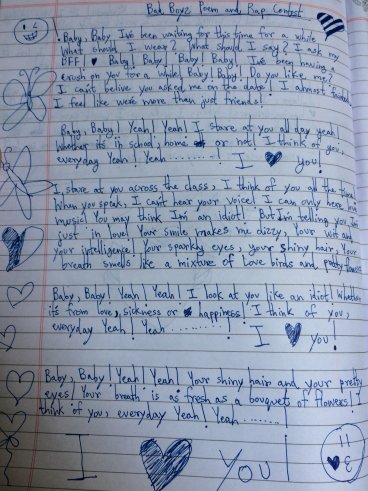 Bad Boyz Poem and Rap Contest
Baby, Baby, I've been waiting for this time for a while
What should I wear? What should I say? I ask my
BFF! Baby! Baby! Baby! Baby! I've been having a
crush on you for a while Baby! Baby! Do you like me?
I can't belive you asked me on the date! I almost fainted.
I feel like we're more than just friends!
Baby, Baby! Yeah! Yeah! I stare at you all day yeah!
Whether its in school, home or not! I think of you,
everyday Yeah! Yeah ..........! I you!
I stare at you across the class, I think of you all the time
When you speak, I can't hear your voice! I can only here
music! You may think I'm an idiot! But I'm telling you, I'm
just in love! Your smile makes me dizzy, Your wit and
your intelligence! Your sparkly eyes, your shiny hair, Your
breath smells like a mixture of love birds and pretty
Baby, Baby! Yeah! Yeah! I look at you like an idiot! Whether
it's from love, sickness or happiness! I think of you,
everyday Yeah! Yeah ..........! I you!
Baby, Baby! Yeah! Yeah! Your shiny hair and your pretty
eyes. Your breath is as fresh as a bouquet of flowers! I
think of you, everyday Yeah! Yeah ........!
I YOU!